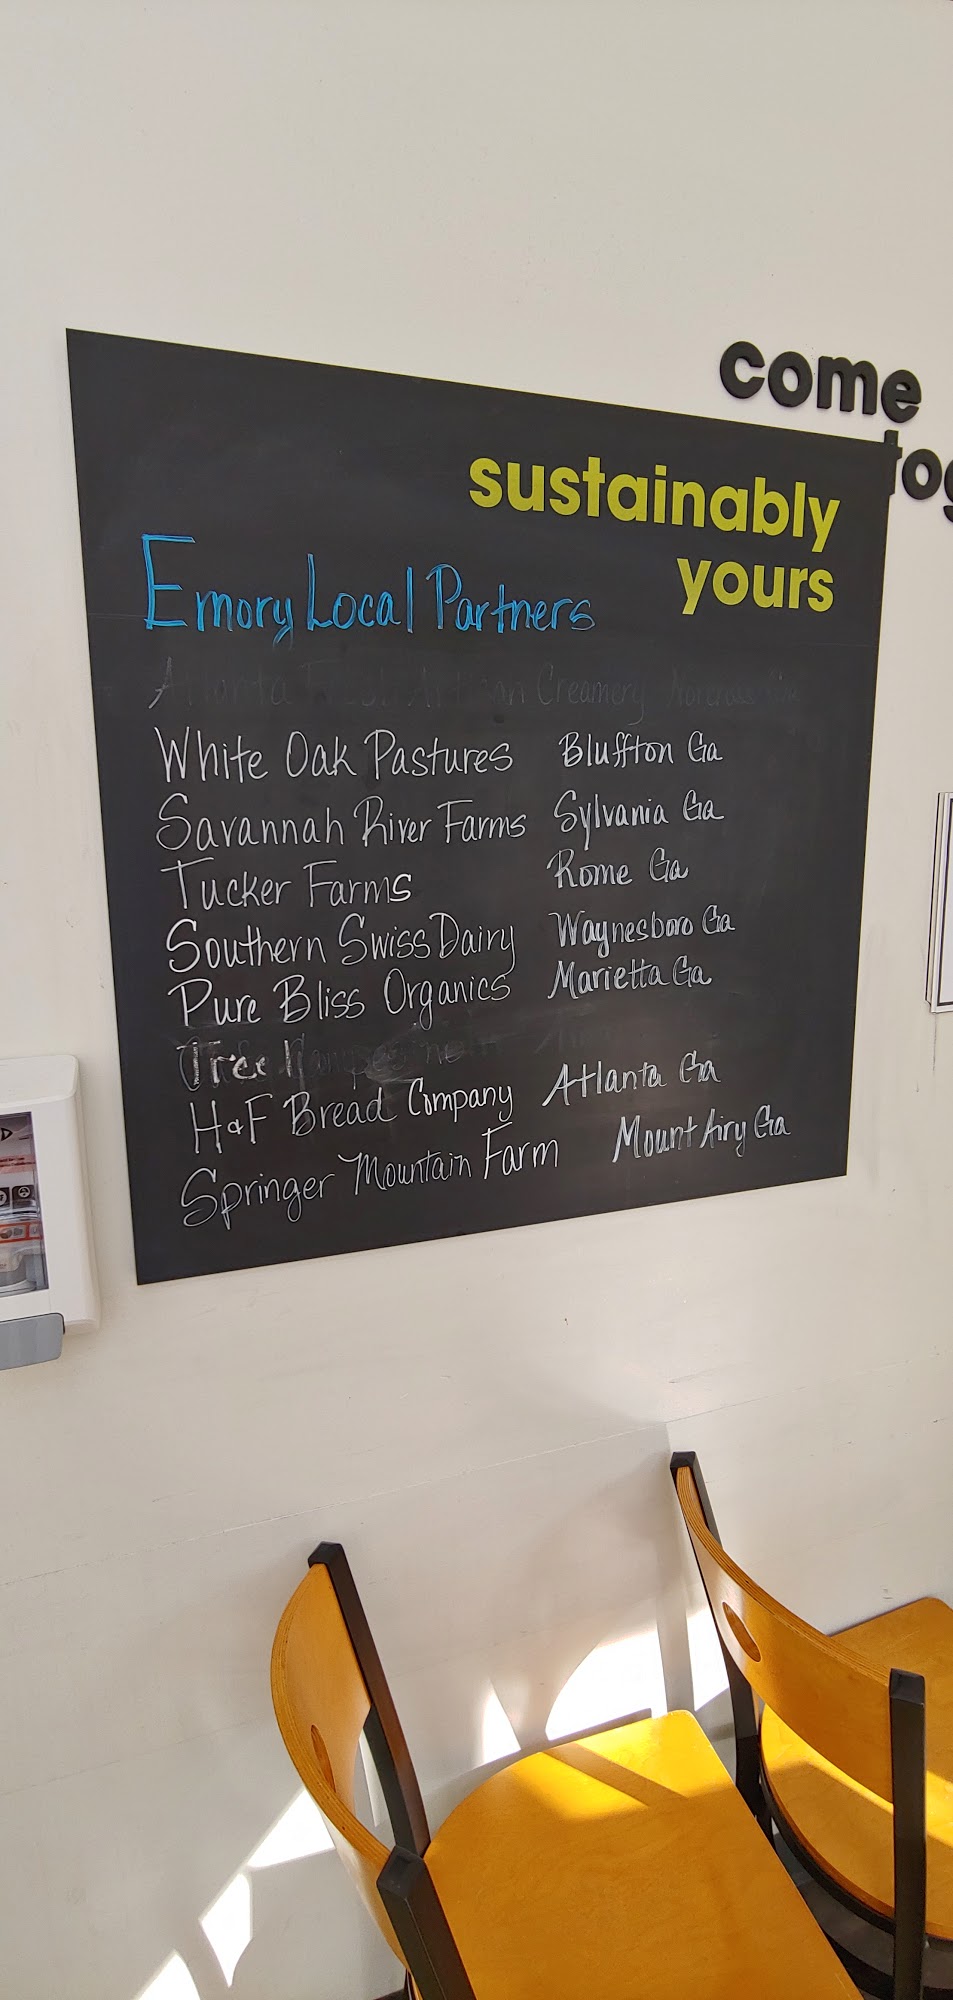 come
tog
sustainably
yours
Emory Local Partners
Atlanta Fresh Artisan Creamery Norcross Ga
White Oak Pastures Bluffton Ga
Savannah River Farms Sylvania Ga
Tucker Farms Rome Ga
Southern Swiss Dairy Waynesboro Ga
Pure Bliss Organics Marietta Ga
Tree
H&F Bread Company Atlanta Ga
Springer Mountain Farm Mount Airy Ga